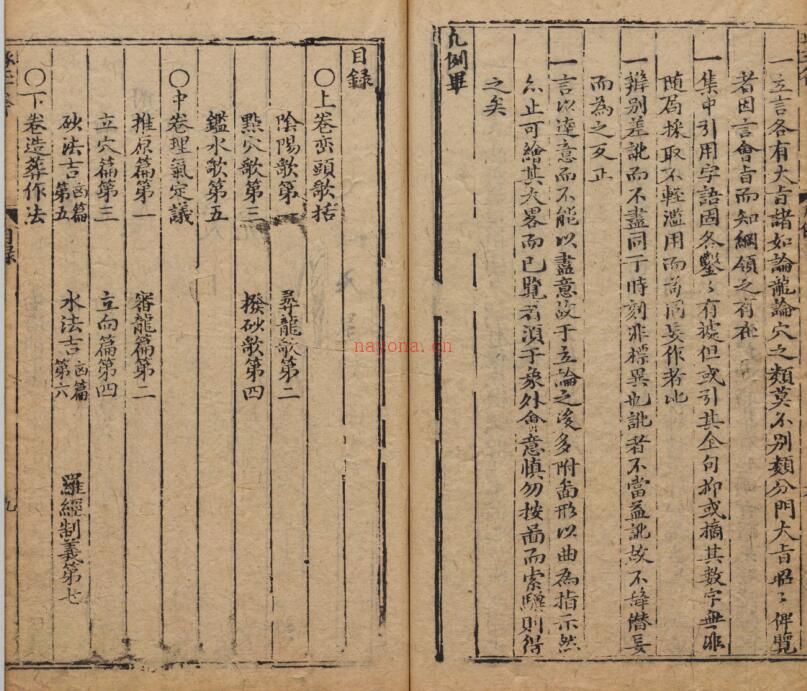 一立言各有大旨諸如論龍論穴之類莫不別類分門大旨昭〻俾覽
者因言會旨而知綱領之有在
一集中引用字語固冬鑿〻有據但或引其全句抑或摘其數字無非
隨局採取不輕濫用而苟簡妄作者比
一辨別差訛而不盡同于時刻非標異也訛者不當益訛故不辭僭妄
而為之反正
一言以達意而不能以盡意故于立論之後多附畵形以曲為指示然
亦止可繪其大畧而已覽者須于象外會意慎勿按畵而索驪則得
之矣
凡例畢
目錄
〇上卷巒頭歌括
陰陽歌第一 尋龍歌第二
點穴歌第三 撥砂歌第四
鑑水歌第五
〇中卷理氣定議
推原篇第一 審龍篇第二
立穴篇第三 立向篇第四
砂法吉凶篇第五 水法吉凶篇第六 羅經制義第七
〇下卷造葬作法
目錄
九
nayona.cn